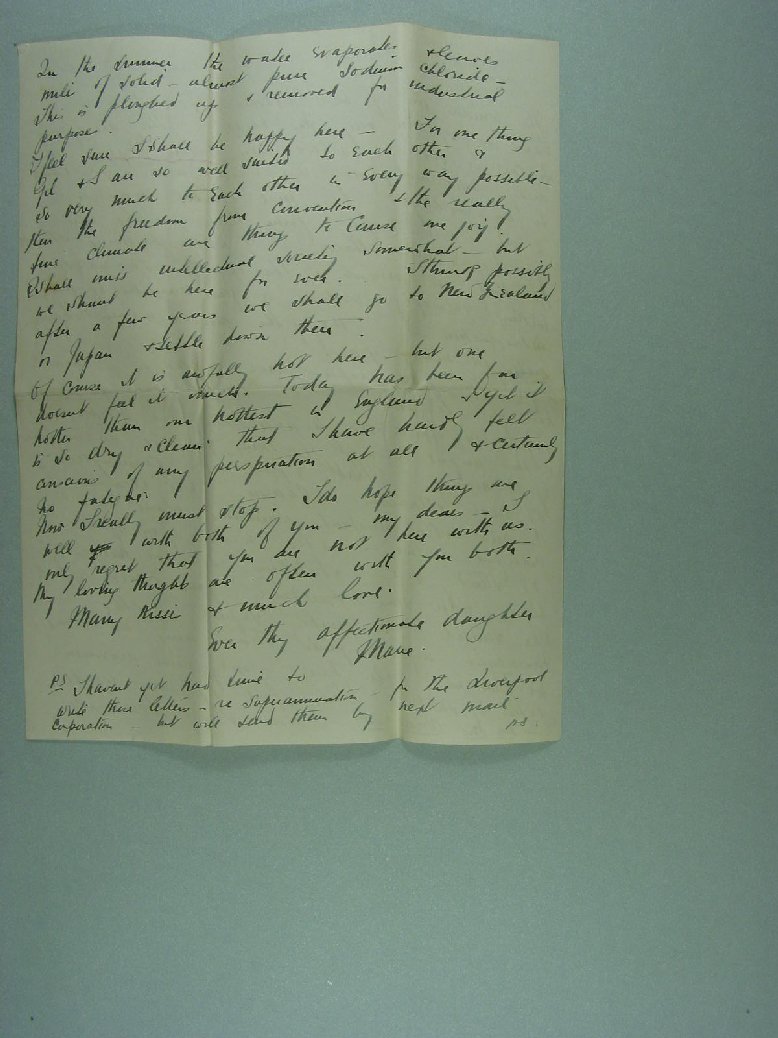 In the summer the water evaporates & leaves
mile of solid - almost pure sodium chloride -
This is ploughed up & removed for industrial
purposes.
I feel sure I shall be happy here - For one thing
& I are so well suited to each other &
so very much to each other in every way possible -
then the freedom from convention & the really
fine climate are things to cause me joy.
I shall miss intellectual society somewhat - but
we shant be here for ever. I think possibly
after a few years we shall go to New Zealand
or Japan & settle down there.
Of course it is awfully hot here - but one
doesnt feel it much. Today has been far
hotter than our hottest in England & yet it
is so dry & clean that I have hardly felt
conscious of any perspiration at all & certainly
no fatigue.
Now I really must stop. I do hope things are
well with both of you - my dears - I
only regret that you are not here with us.
My loving thoughts are often with you both.
Many kisses & much love.
Ever thy affectionate daughter
Marie.
PS I havent yet had time to
write those letters - re superannuation - for the Liverpool
Corporation - but will send them by next mail